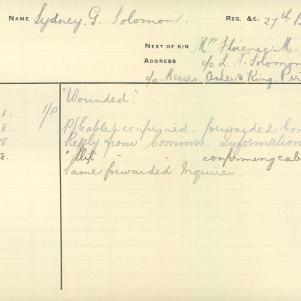 NAME Sydney G. Solomon. REG. &C. 27th B
NEXT OF KIN Mrs Florence M.
ADDRESS c/o L. V. Solomon
c/o Messrs Asher & Ring, Pi
"Wounded."
8. I/P P/Cable confirmed. forwarded Com
8. Reply from Comm. information
8. confirming cab
Same forwarded Inquirer.